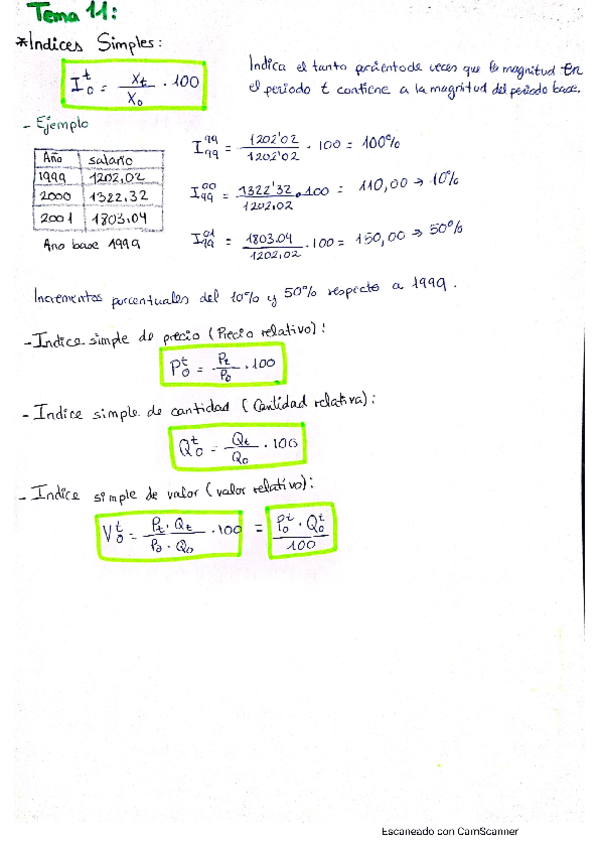 Tema 11:
*Indices Simples:
I₀ᵗ = Xt / X₀ · 100
Indica el tanto porciento de veces que la magnitud en
el periodo t contiene a la magnitud del periodo base.
- Ejemplo
Año salario
1999 1202,02
2000 1322,32
2001 1803,04
Ano base 1999
I₉₉⁹⁹ = 1202'02 / 1202'02 · 100 = 100%
I₉₉⁰⁰ = 1322'32 / 1202,02 · 100 = 110,00 → 10%
I₉₉⁰¹ = 1803.04 / 1202,02 · 100 = 150,00 → 50%
Incrementos porcentuales del 10% y 50% respecto a 1999.
- Indice simple de precio (Precio relativo):
P₀ᵗ = Pt / P₀ · 100
- Indice simple de cantidad (Cantidad relativa):
Q₀ᵗ = Qt / Q₀ · 100
- Indice simple de valor (valor relativo):
V₀ᵗ = Pt · Qt / P₀ · Q₀ · 100 = P₀ᵗ · Q₀ᵗ / 100
Escaneado con CamScanner